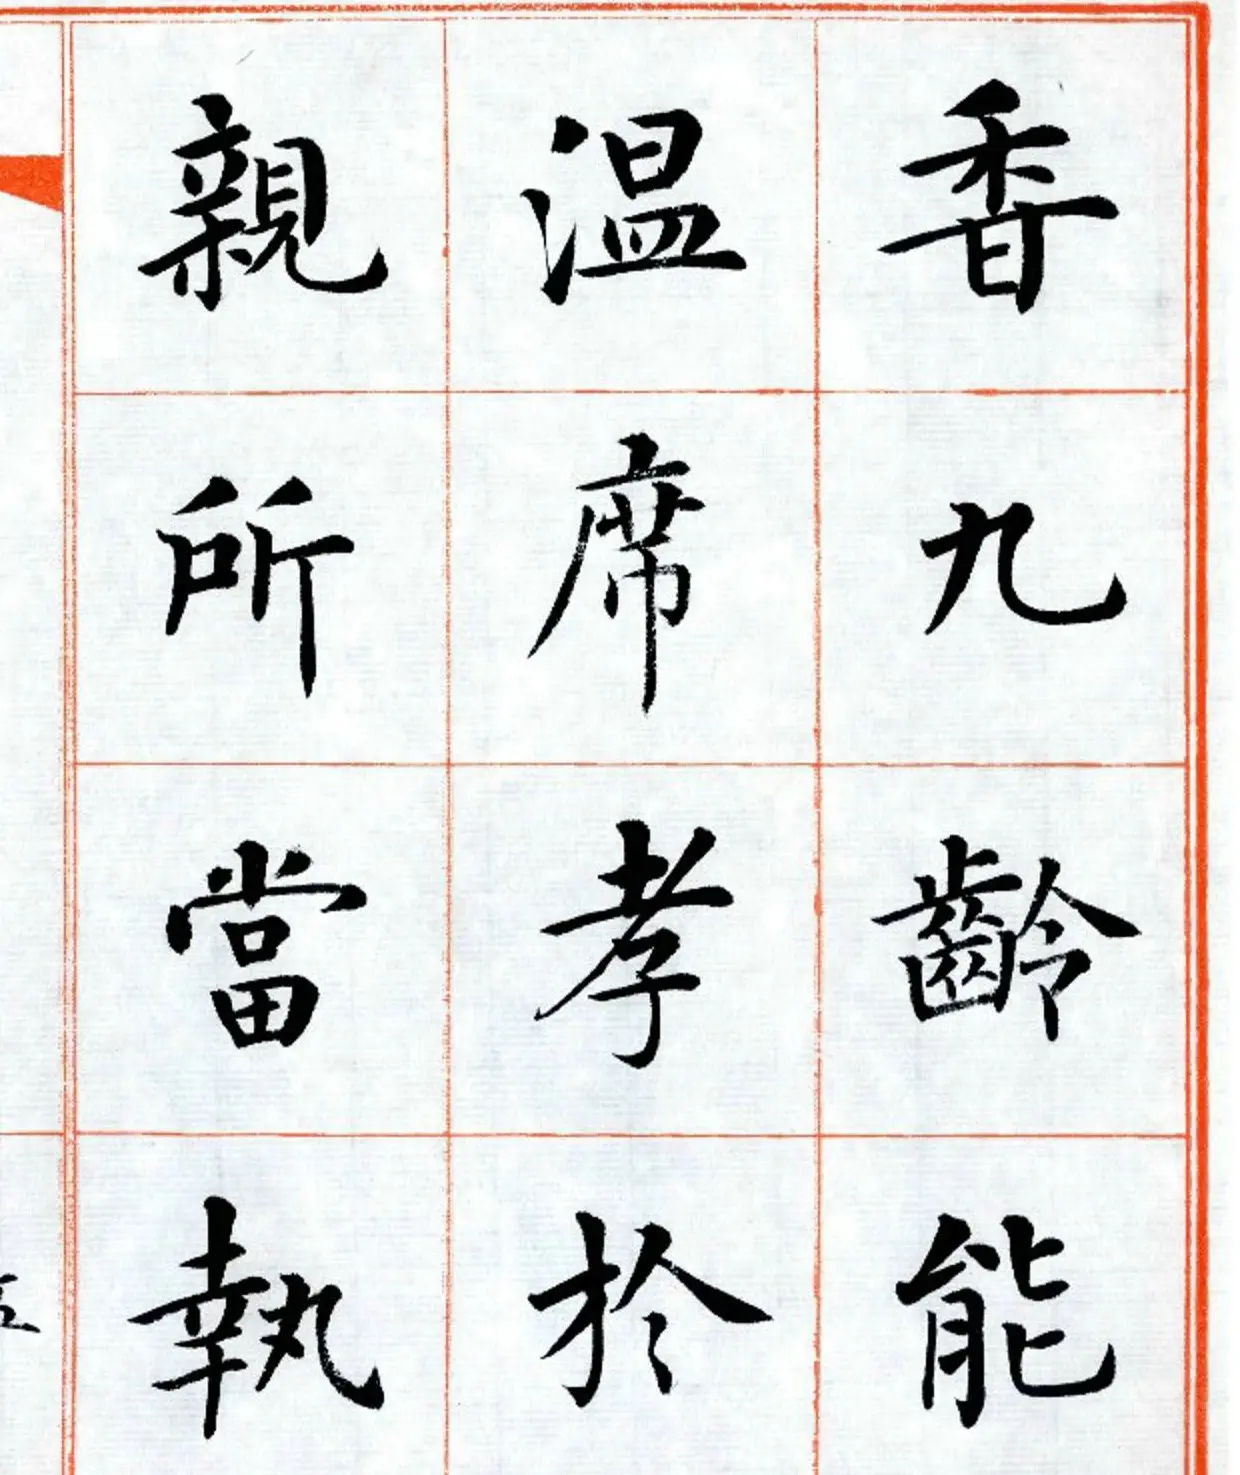 香九齡能
温席孝於
親所當執